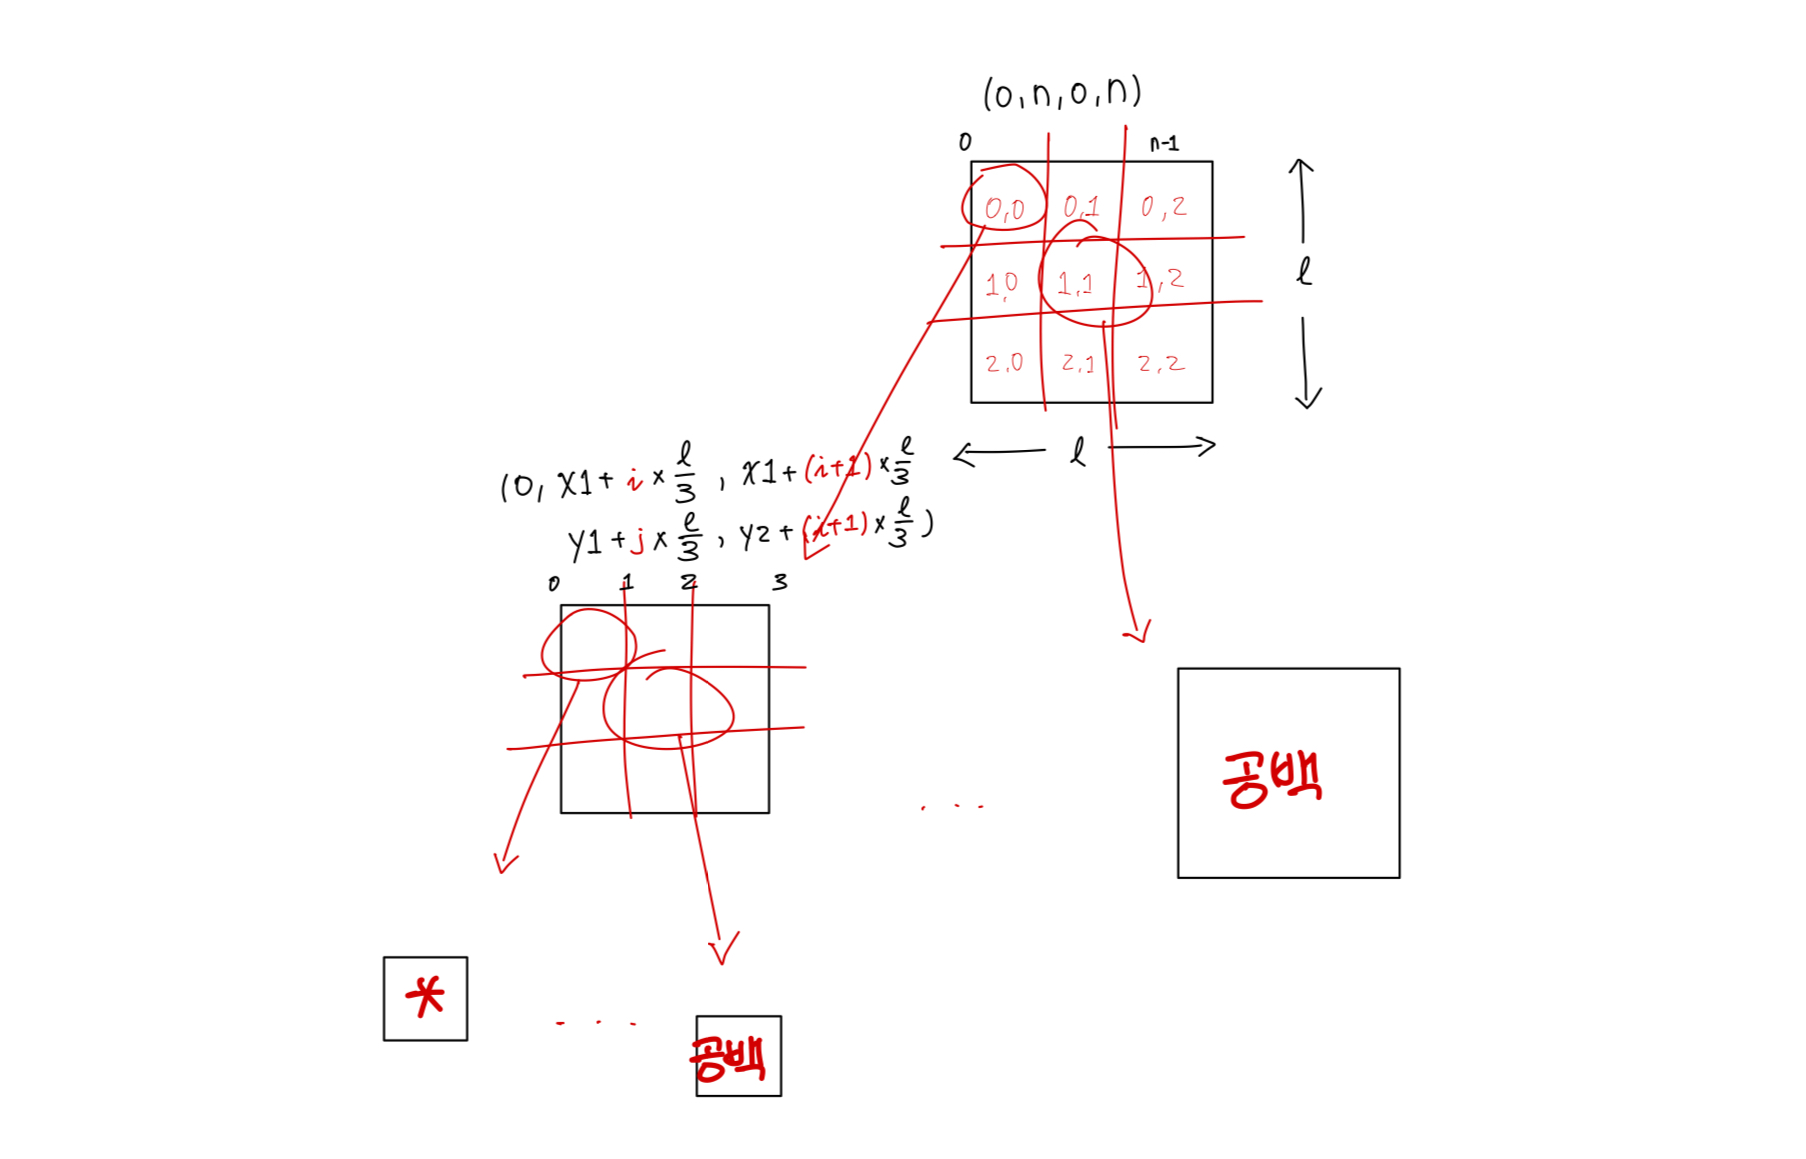 (0,n,0,n)
0 n-1
0,0 0,1 0,2
1,0 1,1 1,2
2,0 2,1 2,2
l
l
(0, X1+ i × l/3 , X1+(i+1)× l/3
Y1+j× l/3 , Y2+(i+1)× l/3 )
0 1 2 3
공백
. . .
*
. . .
공백